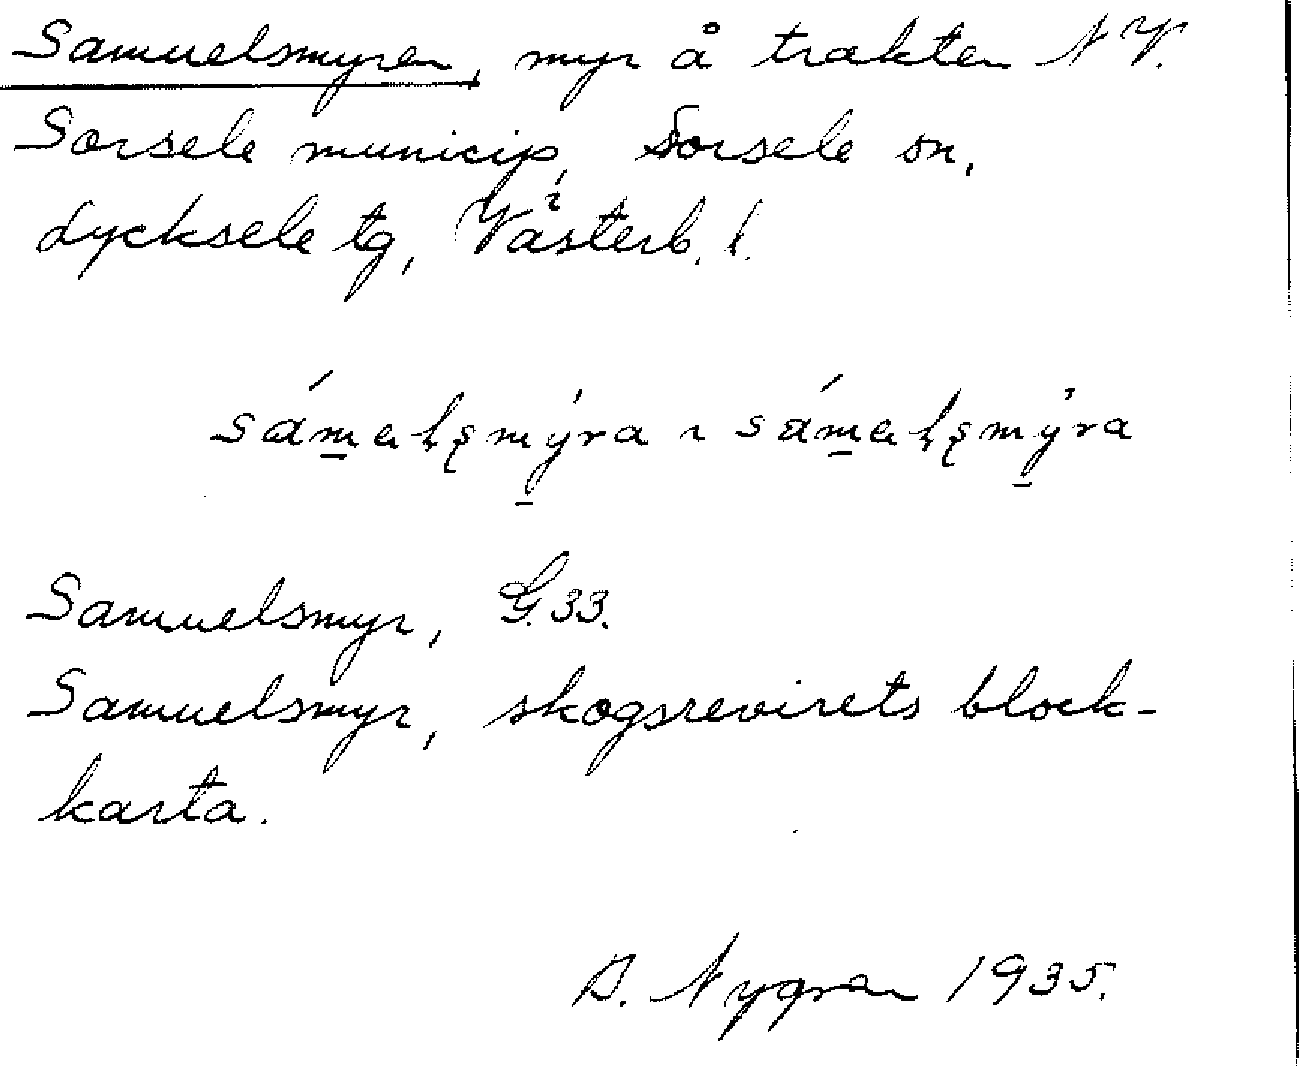 Samuelsmyren, myr å trakten NV.
Sorsele municip, Sorsele sn,
Lycksele tg, Västerb. l.
Samuelsmyr, G. 33.
Samuelsmyr, skogsrevirets block-
karta.
Nygren 1935.